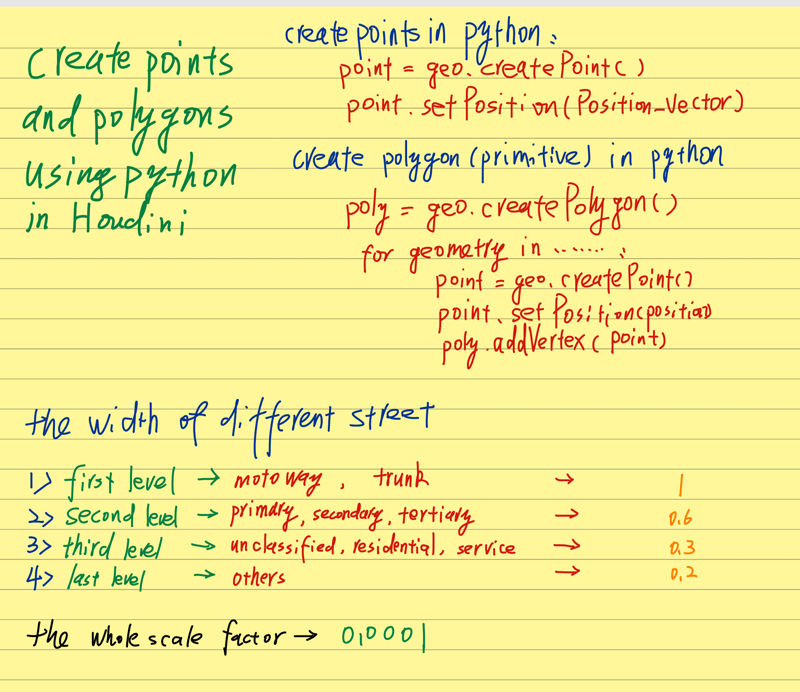 create points
and polygons
using python
in Houdini
create points in python :
point = geo.createPoint()
point.setPosition(Position_Vector)
create polygon(primitive) in python
poly = geo.createPolygon()
for geometry in ....... :
point = geo.createPoint()
point.setPosition(position)
poly.addVertex(point)
the width of different street
1> first level → motoway, trunk → 1
2> second level → primary, secondary, tertiary → 0.6
3> third level → unclassified, residential, service → 0.3
4> last level → others → 0.2
the whole scale factor → 0.0001